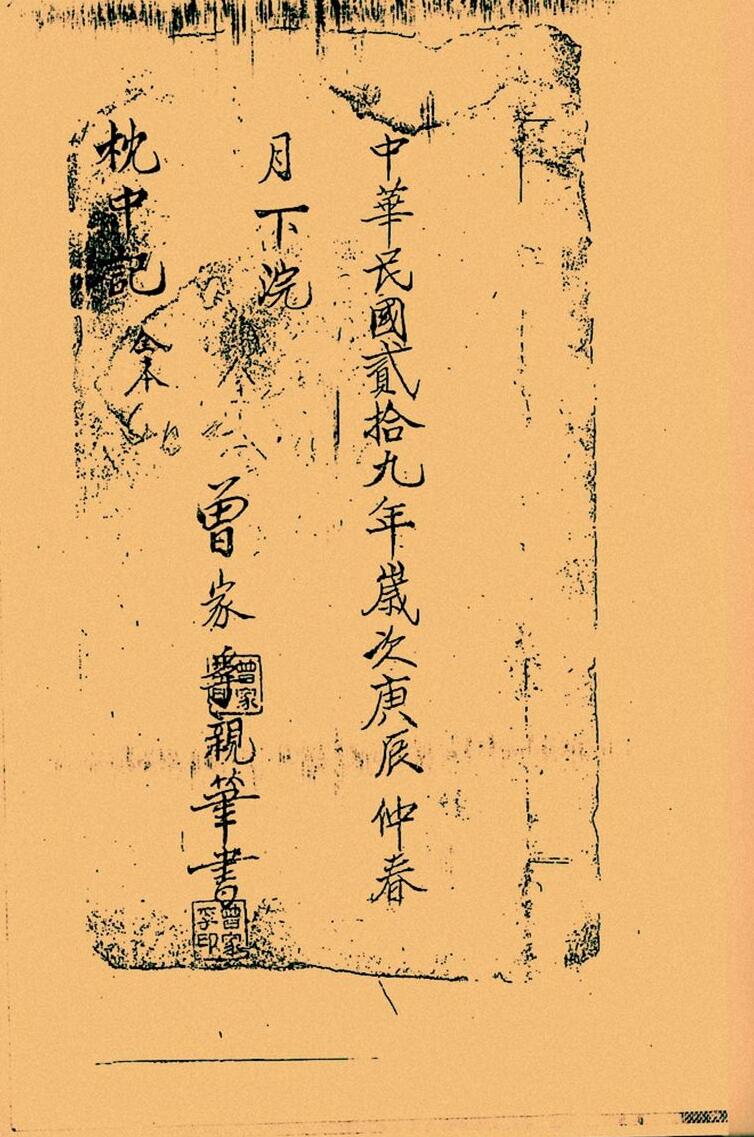 中華民國貳拾九年歲次庚辰仲春
月下浣
曾家 親筆書
曾家
曾家 印
枕中記
全本